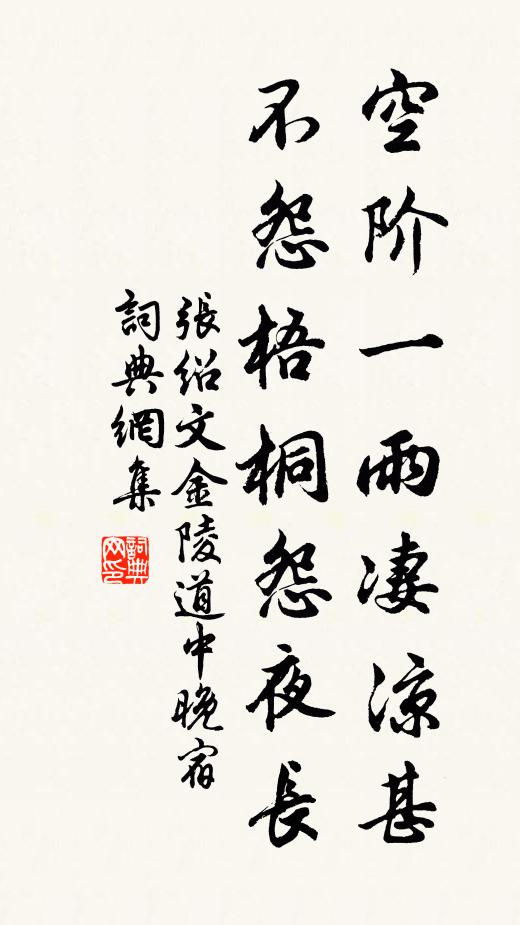 空阶一雨凄凉甚
不怨梧桐怨夜長
張紹文金陵道中晚宿
詞典網集
詞典网印